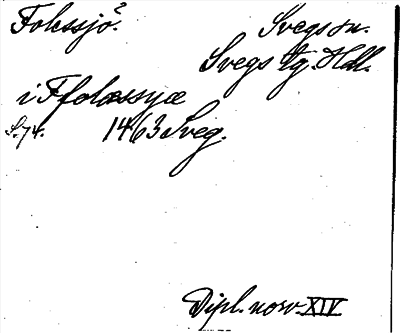 Folkssjö.² Svegs sn.
Svegs tg. Hdl.
i Ffolassyæ
S. 74. 1463 Sveg.
Dipl. norv. XIV